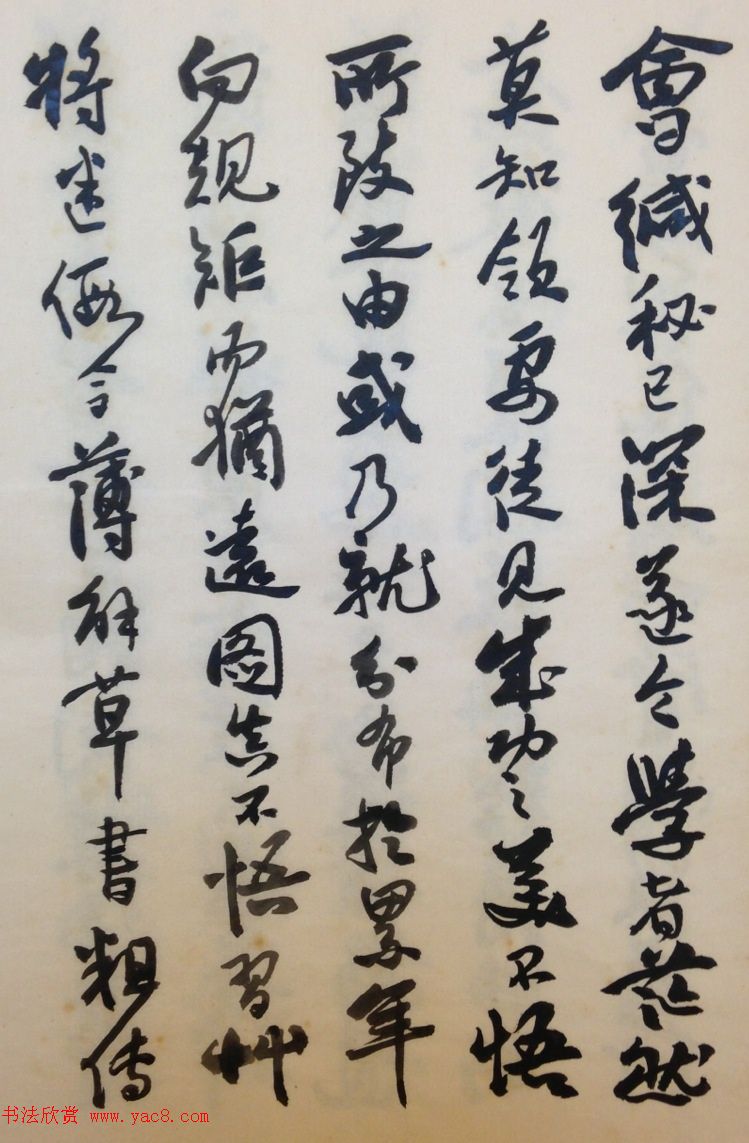 會緘秘已深遂令學者茫然
莫知領要徒見成功之美不悟
所致之由或乃就分布於累年
向規矩而猶遠圖真不悟習艸
將迷假令薄解草書粗傳
书法欣赏 www.yac8.com